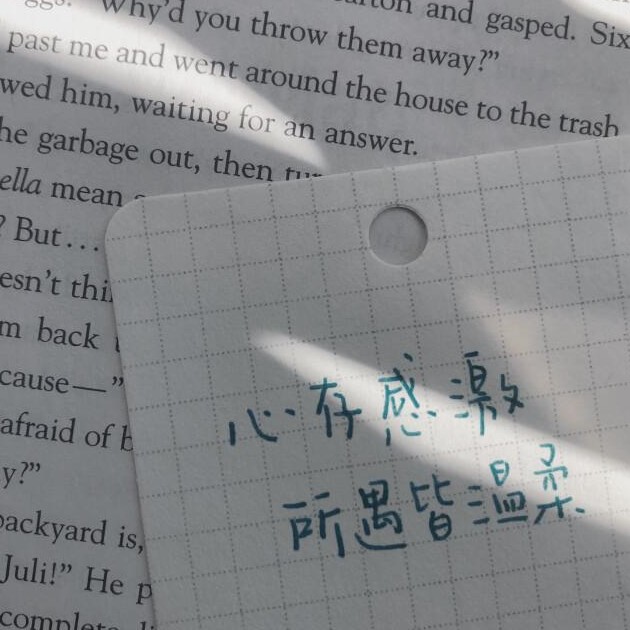 Why'd you throw them away?"
and gasped. Six
past me and went around the house to the trash
wed him, waiting for an answer.
he garbage out, then
ella mean
? But...
esn't thi
m back
cause—"
afraid of b
y?"
backyard is,
Juli!" He p
心存感激
所遇皆溫柔